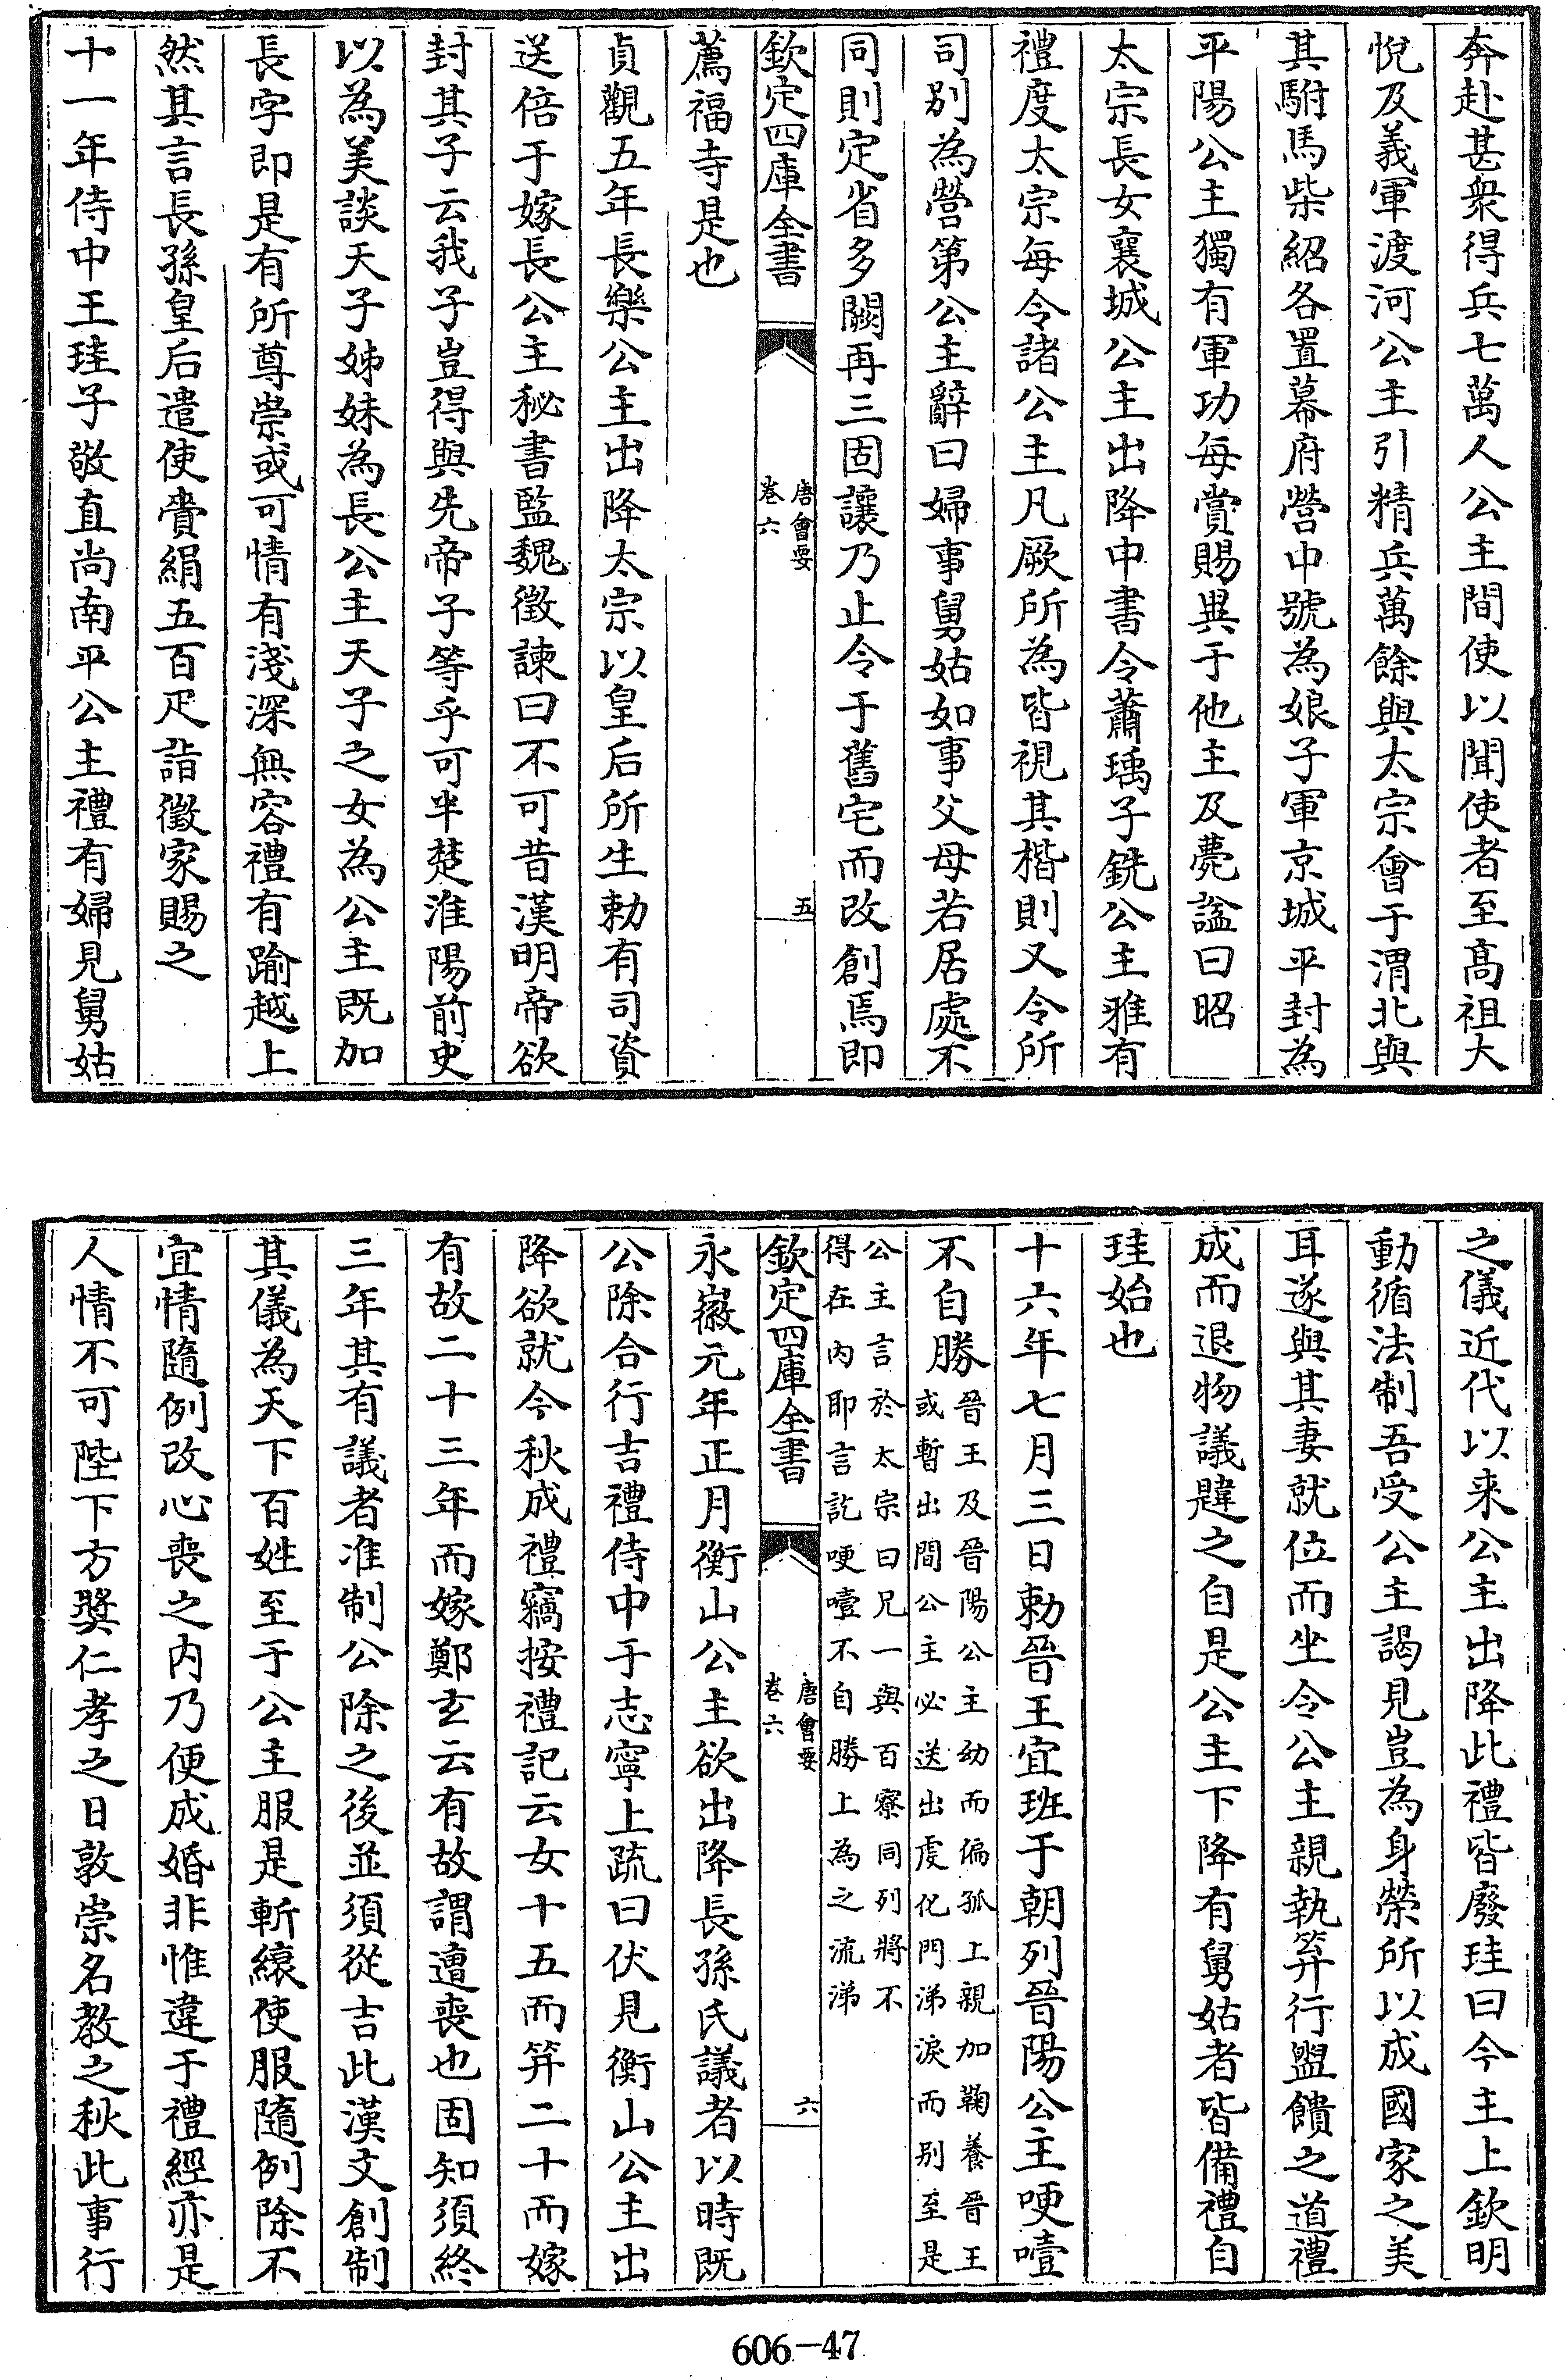 奔赴甚衆得兵七萬人公主間使以聞使者至髙祖大
悅及義軍渡河公主引精兵萬餘與太宗會于渭北與
其駙馬柴紹各置幕府營中號為娘子軍京城平封為
平陽公主獨有軍功每賞賜異于他主及薨諡曰昭
太宗長女襄城公主出降中書令蕭瑀子銳公主雅有
禮度太宗每令諸公主凡厥所為皆視其楷則又令所
司别為營第公主辭曰婦事舅姑如事父母若居處不
同則定省多闕再三固讓乃止令于舊宅而改創焉即
欽定四庫全書
唐會要
卷六
五
薦福寺是也
貞觀五年長樂公主出降太宗以皇后所生勅有司資
送倍于嫁長公主秘書監魏徵諫曰不可昔漢明帝欲
封其子云我子豈得與先帝子等乎可半楚淮陽前史
以為美談天子姊妹為長公主天子之女為公主既加
長字即是有所尊崇或可情有淺深無容禮有踰越上
然其言長孫皇后遣使賫絹五百疋詣徵家賜之
十一年侍中王珪子敬直尚南平公主禮有婦見舅姑
之儀近代以来公主出降此禮皆廢珪曰今主上欽明
動循法制吾受公主謁見豈為身榮所以成國家之美
耳遂與其妻就位而坐令公主親執笄行盥饋之道禮
成而退物議韙之自是公主下降有舅姑者皆備禮自
珪始也
十六年七月三日勅晉王宜班于朝列晉陽公主哽噎
不自勝
晉王及晉陽公主幼而偏孤上親加鞠養晉王
或暫出間公主必送出虔化門涕淚而别至是
公主言於太宗曰兄一與百寮同列將不
得在内耶言訖哽噎不自勝上為之流涕
欽定四庫全書
唐會要
卷六
六
永嶶元年正月衡山公主欲出降長孫氏議者以時既
公除合行吉禮侍中于志寧上疏曰伏見衡山公主出
降欲就今秋成禮竊按禮記云女十五而笄二十而嫁
有故二十三年而嫁鄭玄云有故謂遭喪也固知須終
三年其有議者准制公除之後並須從吉此漢文創制
其儀為天下百姓至于公主服是斬縗使服隨例除不
宜情隨例改心喪之内乃便成婚非惟違于禮經亦是
人情不可陛下方奬仁孝之日敦崇名教之秋此事行
606-47